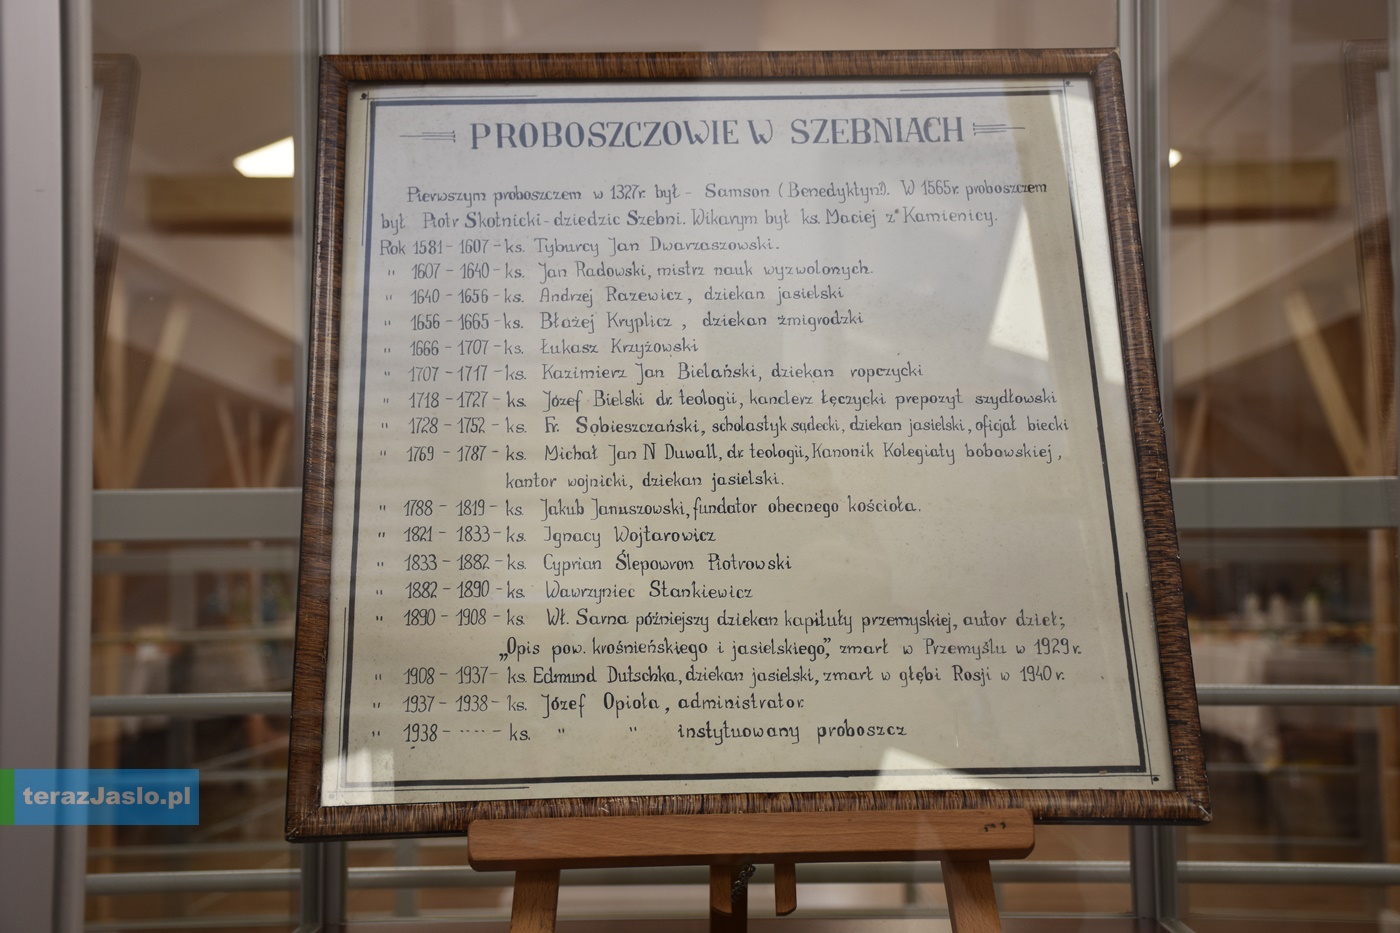 PROBOSZCZOWIE W SZEBNIACH
Pierwszym proboszczem w 1327r. był - Samson (Benedyktyn). W 1565r. proboszczem
był Piotr Skotnicki - dziedzic Szebni. Wikarym był ks. Maciej z Kamienicy.
Rok 1581 - 1607 - ks. Tyburcy Jan Dwarzaszowski.
" 1607 - 1640 - ks. Jan Radowski, mistrz nauk wyzwolonych.
" 1640 - 1656 - ks. Andrzej Razewicz, dziekan jasielski
" 1656 - 1665 - ks. Błażej Kryplicz, dziekan żmigrodzki
" 1666 - 1707 - ks. Łukasz Krzyżowski
" 1707 - 1717 - ks. Kazimierz Jan Bielański, dziekan ropczycki
" 1718 - 1727 - ks. Józef Bielski dr. teologii, kanclerz Łęczycki prepozyt szydłowski
" 1728 - 1752 - ks. Fr. Sobieszczański, scholastyk sądecki, dziekan jasielski, oficjał biecki
" 1769 - 1787 - ks. Michał Jan N Duwall, dr. teologii, Kanonik Kolegiaty bobowskiej,
kantor wojnicki, dziekan jasielski.
" 1788 - 1819 - ks. Jakub Januszowski, fundator obecnego kościoła.
" 1821 - 1833 - ks. Ignacy Wojtarowicz
" 1833 - 1882 - ks. Cyprian Ślepowron Piotrowski
" 1882 - 1890 - ks. Wawrzyniec Stankiewicz
" 1890 - 1908 - ks. Wł. Sarna późniejszy dziekan kapituły przemyskiej, autor dzieł;
„Opis pow. krośnieńskiego i jasielskiego”, zmarł w Przemyślu w 1929 r.
" 1908 - 1937 - ks. Edmund Dutschka, dziekan jasielski, zmarł w głębi Rosji w 1940 r.
" 1937 - 1938 - ks. Józef Opioła, administrator
" 1938 - ···· - ks. " " instytuowany proboszcz
terazJaslo.pl